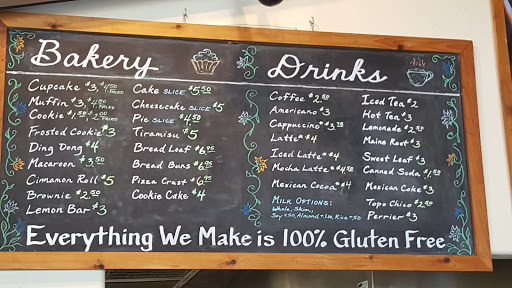 Bakery
Cupcake $3, $4.50 PALEO
Muffin $3, $4.50 PALEO
Cookie $1.50 $2.00 PALEO
Frosted Cookie $3
Ding Dong $4
Macaroon $3.50
Cinnamon Roll $5
Brownie $2.50
Lemon Bar $3
Cake SLICE $5.50
Cheesecake SLICE $5
Pie SLICE $4.50
Tiramisu $5
Bread Loaf $6.75
Bread Buns $6.75
Pizza Crust $6.75
Cookie Cake $4
Drinks
Coffee $2.50
Americano $3
Cappuccino $3.75
Latte* $4
Iced Latte* $4
Mocha Latte $4.50
Mexican Cocoa* $4
MILK OPTIONS:
Whole, Skim,
Soy +.50, Almond +1.00, Rice +.50
Iced Tea $2
Hot Tea $3
Lemonade $2.50
Maine Root $3
Sweet Leaf $3
Canned Soda $1.50
Mexican Coke $3
Topo Chico $2.50
Perrier $3
Everything We Make is 100% Gluten Free